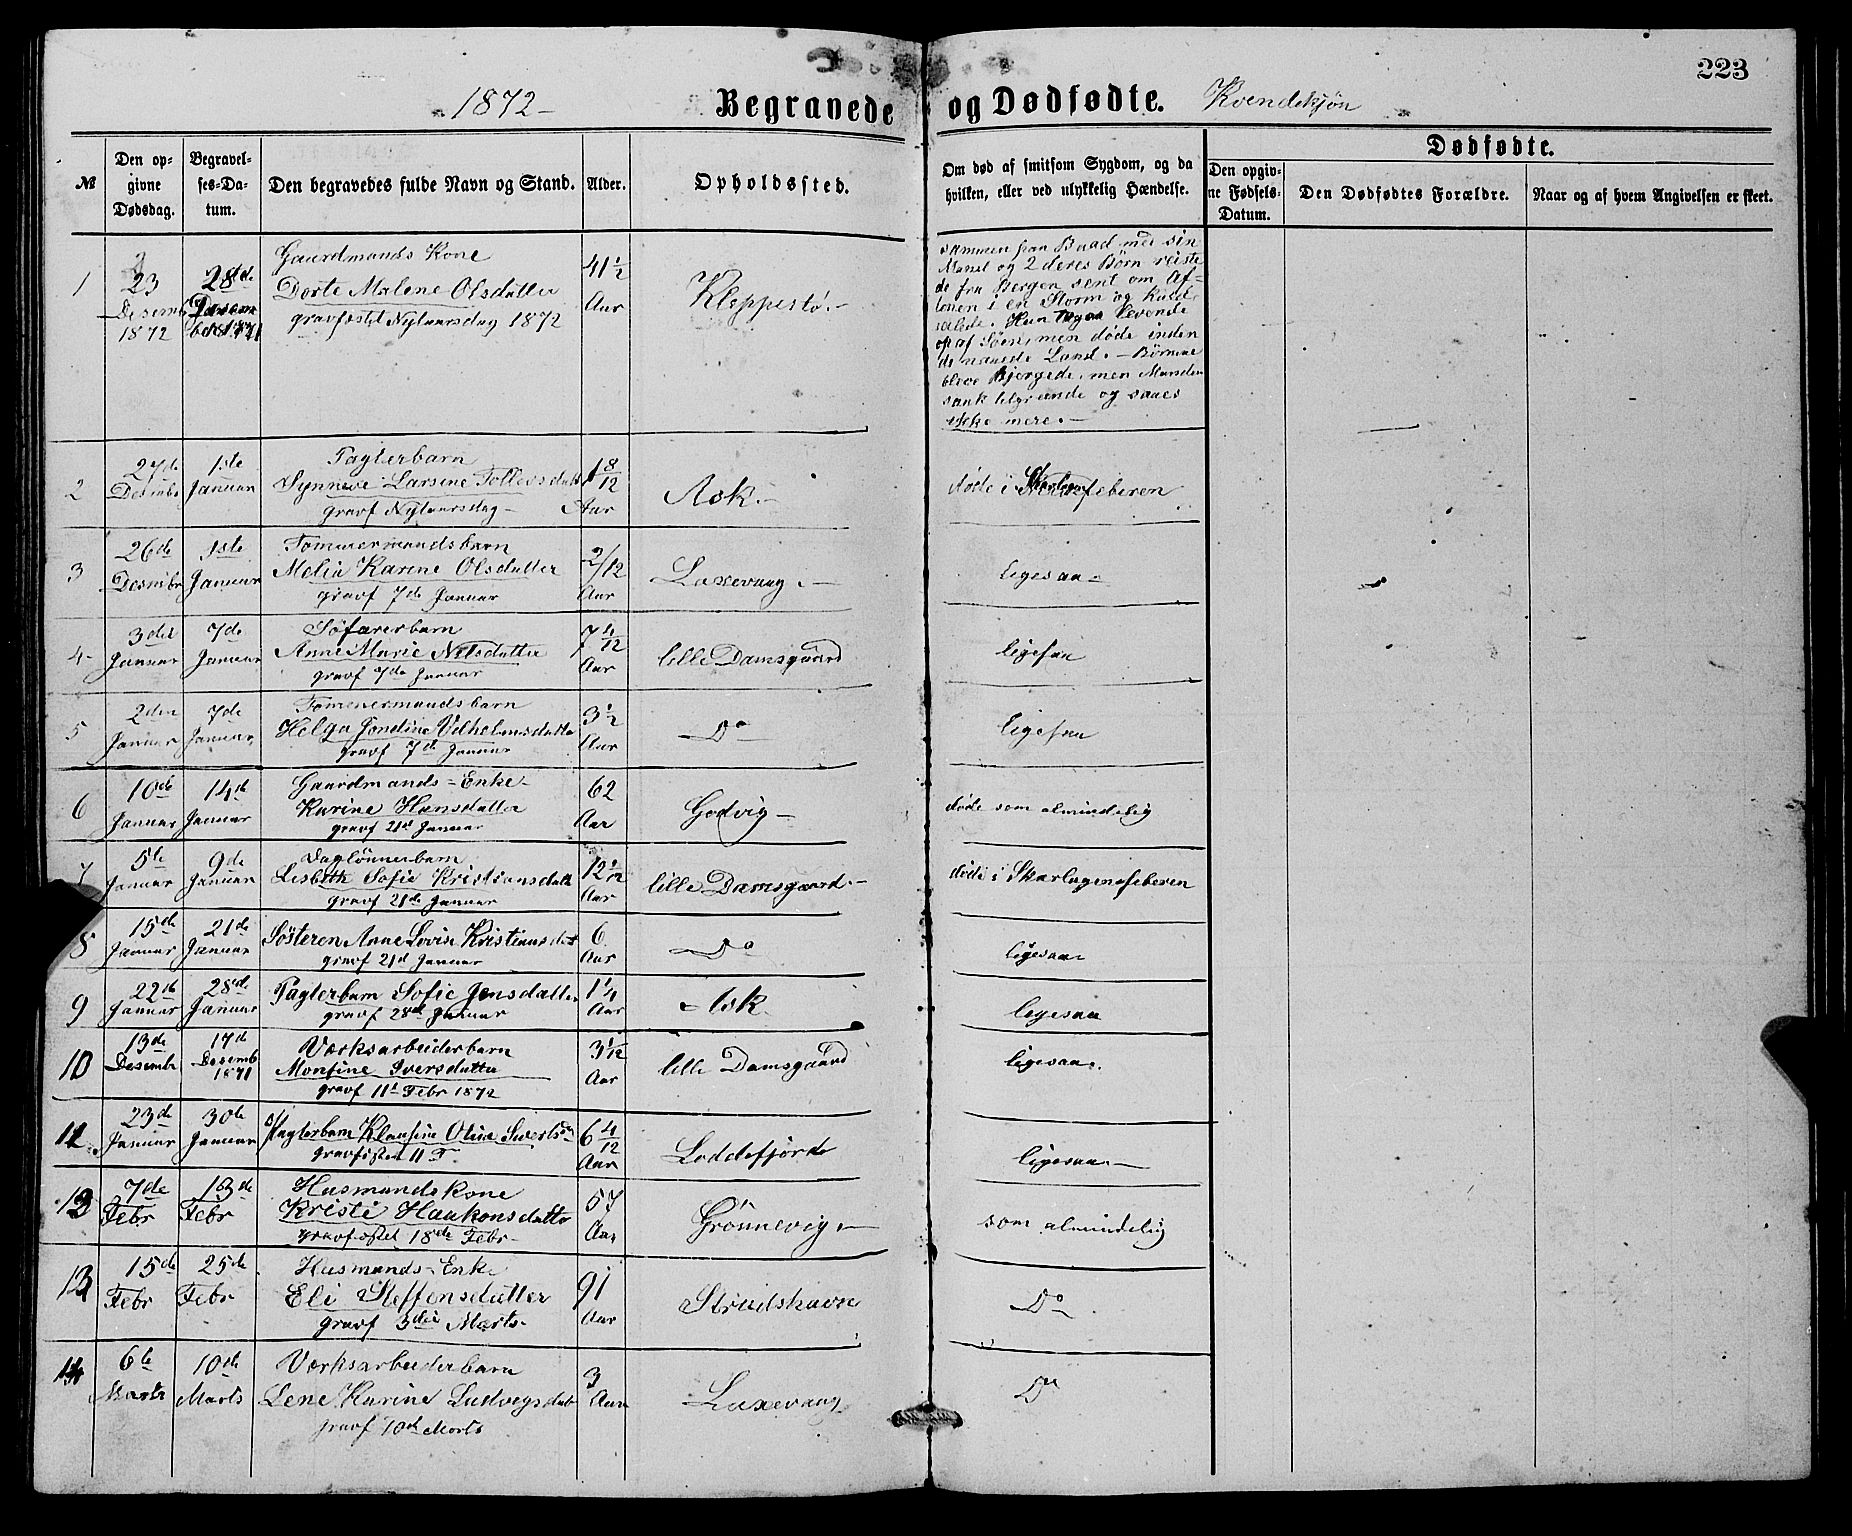 223
1872 -
Begravede og Dødfødte.
Kvendekjøn
№
Den op-
givne
Dødsdag.
Begravel-
ses-Da-
tum.
Den begravedes fulde Navn og Stand.
Alder.
Opholdssted.
Om død af smitsom Sygdom, og da
hvilken, eller ved ulykkelig Hændelse.
Dødfødte.
Den opgiv-
ne Fødsels-
Datum.
Den Dødfødtes Forældre.
Naar og af hvem Angivelsen er skeet.
1
23
Desemb
1872
28de
1871
Gaardmands Kone
Dorte Malene Olsdatter
gravfæstet Nytaarsdag 1872
41 1/2
Aar
Kleppestø. -
sammen paa Baad med sin
Mand og 2 deres Børn reiste
de fra Bergen sent om Af-
tenen i en Storm og Kuld-
seilede. Hun toges levende
op af Søen, men døde inden
de naaede Land. - Børnene
bleve bjergede, men Manden
sank tilgrunde og saaes
ikke mere. -
2
27de
Desmbr
1ste
Januar
Pagterbarn
Synneve Larsine Tollevsdatt
gravf Nytaarsdag -
1 8/12
Aar
Ask. -
døde i Skarlagensfeberen
3
26de
Desmbr
1ste
Januar
Tømmermandsbarn
Melia Karine Olsdatter
gravf 7de Januar
2/12
Aar
Laxevaag. -
ligesaa -
4
3die
Januar
7de
Januar
Søfarerbarn
Anne Marie Nilsdatter
gravf 7de Januar
7 4/12
Aar
lille Damsgaard
ligesaa
5
2den
Januar
7de
Januar
Tømmermandsbarn
Helga Jondine Vilhelmsdatte
gravf 7de Januar
3 1/2
Aar
Do
ligesaa
6
10de
Januar
14de
Januar
Gaardmands-Enke
Karine Hansdatter
gravf 21de Januar
62
Aar
Godvig -
døde som almindelig
7
5te
Januar
9de
Januar
Daglønnerbarn
Lisbeth Sofie Kristiansdatt
gravf 21de Januar
12 1/12
Aar
lille Damsgaard. -
døde i Skarlagensfeberen
8
15de
Januar
21de
Januar
Søsteren Anne Lovise Kristiansdat
gravf 21de Januar
6
Aar
Do
ligesaa
9
22de
Januar
28de
Januar
Pagterbarn Sofie Jensdatter
gravf 28de Januar
1 1/4
Aar
Ask
ligesaa
10
13de
Desembr
17de
Desemb
1871
Værksarbeiderbarn
Monsine Iversdatter
gravf 11t Febr 1872
3 1/12
Aar
lille Damsgaard
ligesaa.
11
23de
Januar
30de
Januar
Pagterbarn Klausine Oline Sivertsd
gravfæstet 11 F
6 4/12
Aar
Loddefjorde
ligesaa. -
12
7de
Febr
13de
Febr
Husmandskone
Kristi Haakonsdatter
gravfæstet 18de Febr -
57
Aar
Grønnevig. -
som almindelig
13
15de
Febr
25de
Febr
Husmands-Enke
Eli Steffensdatter
gravf 3die Marts -
91
Aar
Strudshavn
Do
14
6te
Marts
10de
Marts
Værksarbeiderbarn
Lene Karine Ludvigsdatt
gravf 10de Marts
3
Aar
Laxevaag
Do